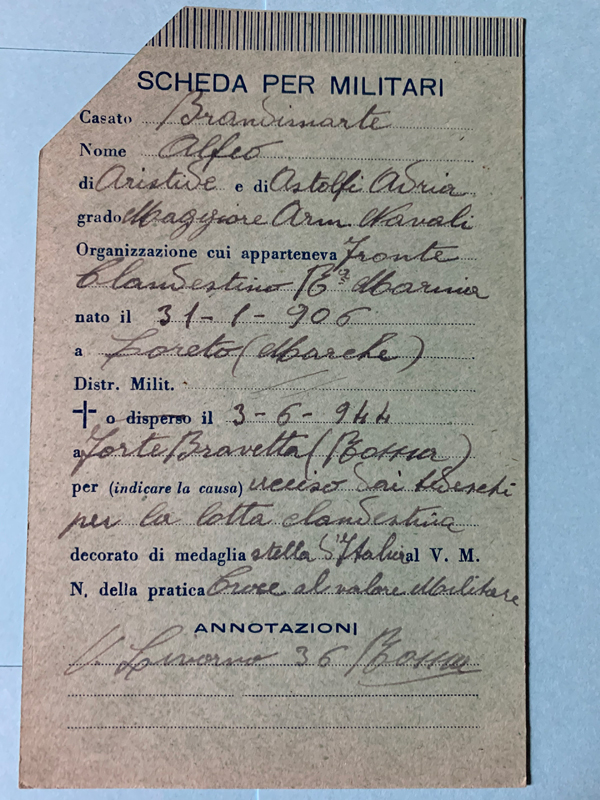 SCHEDA PER MILITARI
Casato Brandimarte
Nome Alfeo
di Aristide e di Astolfi Adria
grado Maggiore Arm. Navali
Organizzazione cui apparteneva Fronte
Clandestino Ra Marina
nato il 31-1-906
a Loreto (Marche)
Distr. Milit.
o disperso il 3-6-944
a Forte Bravetta (Roma)
per (indicare la causa) ucciso dai tedeschi
per la lotta clandestina
decorato di medaglia stella d'Italia al V. M.
N. della pratica Croce al valore Militare
ANNOTAZIONI
V. Livorno 36 Roma